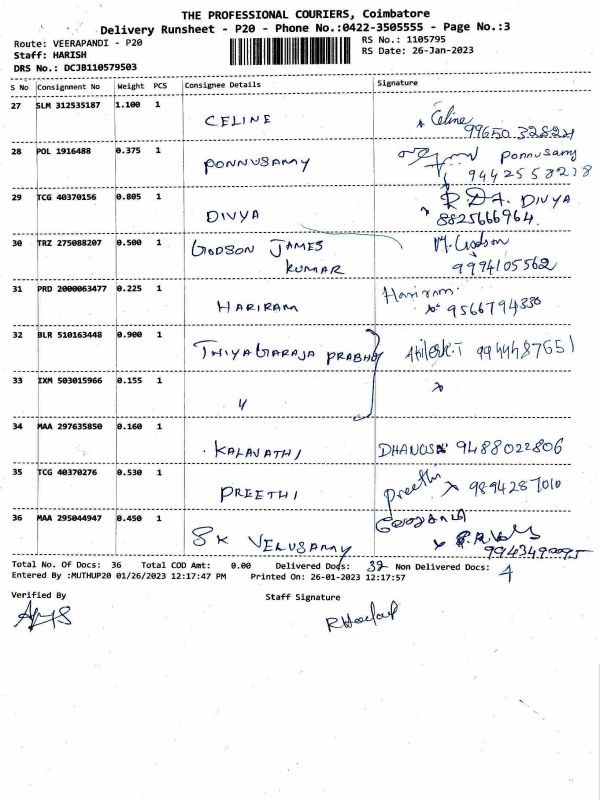 THE PROFESSIONAL COURIERS, Coimbatore
Delivery Runsheet - P20 - Phone No.:0422-3505555 - Page No.:3
Route: VEERAPANDI - P20
Staff: HARISH
DRS No.: DCJB110579503
RS No.: 1105795
RS Date: 26-Jan-2023
S No Consignment No Weight PCS Consignee Details Signature
27 SLM 312535187 1.100 1 CELINE Celine
28 POL 1916488 0.375 1 PONNUSAMY Ponnusamy
9442558278
29 TCG 40370156 0.805 1 DIVYA DIVYA
8825666964.
30 TRZ 275088207 0.500 1 GODSON JAMES M. Godson
KUMAR 9994105562
31 PRD 2000063477 0.225 1 HARIRAM Hariram.
9566794330
32 BLR 510163448 0.900 1 THIYAGARAJA PRABHU 9944487651
33 IXM 503015966 0.155 1 〃
34 MAA 297635850 0.160 1 KALAVATHI 9488022806
35 TCG 40370276 0.530 1 PREETHI Preethi 9894287010
36 MAA 295044947 0.450 1 SK VELUSAMY
Total No. Of Docs: 36 Total COD Amt: 0.00 Delivered Docs: 32 Non Delivered Docs: 4
Entered By :MUTHUP20 01/26/2023 12:17:47 PM Printed On: 26-01-2023 12:17:57
Verified By Staff Signature